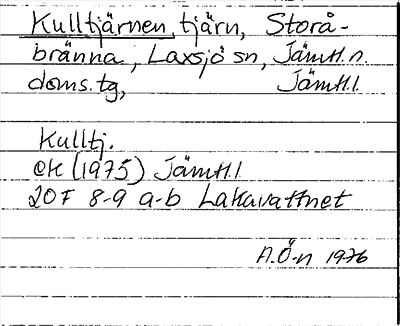 Kulltjärnen, tjärn, Storå-
bränna, Laxsjö sn, Jämtl. n.
doms. tg, Jämtl.
Kulltj.
ek (1975) Jämtl.
20F 8-9 a-b Lakavattnet
A.Ö-n 1976